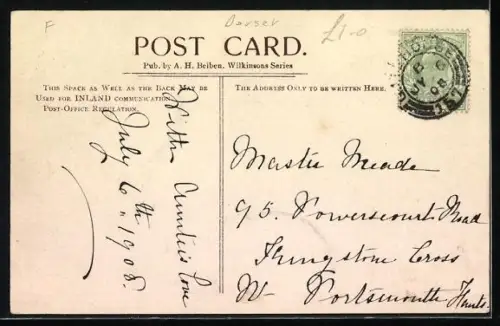 F
Dorset
£1-0
POST CARD.
Pub. by A. H. Beiben. Wilkinsons Series
This Space as Well as the Back May be
Used for INLAND communication.
Post-Office Regulation.
The Address Only to be written Here.
With Auntie's love
July 6th, 1908.
Master Meade
95. Powerscourt Road
Kingston Cross
Nr Portsmouth Hants.
08